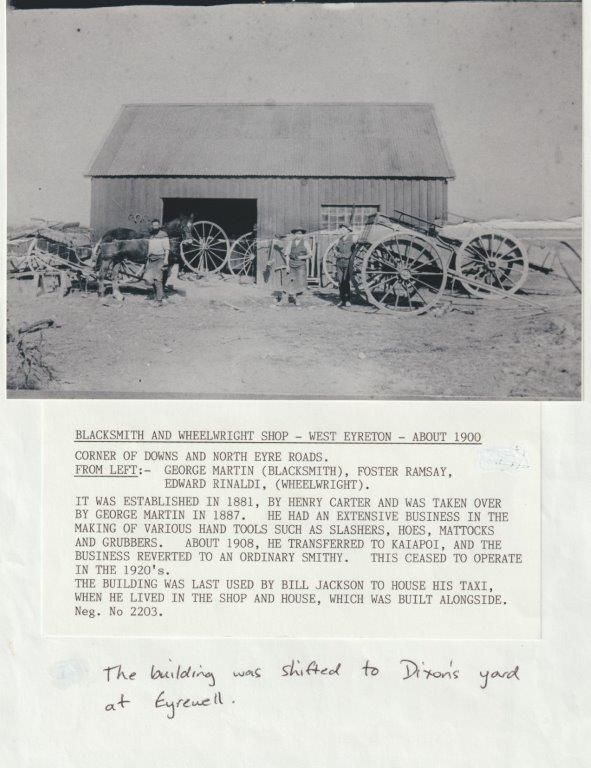 BLACKSMITH AND WHEELWRIGHT SHOP - WEST EYRETON - ABOUT 1900
CORNER OF DOWNS AND NORTH EYRE ROADS.
FROM LEFT:- GEORGE MARTIN (BLACKSMITH), FOSTER RAMSAY,
EDWARD RINALDI, (WHEELWRIGHT).
IT WAS ESTABLISHED IN 1881, BY HENRY CARTER AND WAS TAKEN OVER
BY GEORGE MARTIN IN 1887. HE HAD AN EXTENSIVE BUSINESS IN THE
MAKING OF VARIOUS HAND TOOLS SUCH AS SLASHERS, HOES, MATTOCKS
AND GRUBBERS. ABOUT 1908, HE TRANSFERRED TO KAIAPOI, AND THE
BUSINESS REVERTED TO AN ORDINARY SMITHY. THIS CEASED TO OPERATE
IN THE 1920's.
THE BUILDING WAS LAST USED BY BILL JACKSON TO HOUSE HIS TAXI,
WHEN HE LIVED IN THE SHOP AND HOUSE, WHICH WAS BUILT ALONGSIDE.
Neg. No 2203.
The building was shifted to Dixon's yard
at Eyrewell.